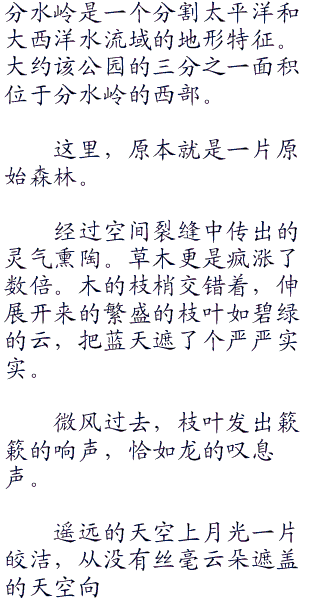 分水岭是一个分割太平洋和
大西洋水流域的地形特征。
大约该公园的三分之一面积
位于分水岭的西部。
这里，原本就是一片原
始森林。
经过空间裂缝中传出的
灵气熏陶。草木更是疯涨了
数倍。木的枝梢交错着，伸
展开来的繁盛的枝叶如碧绿
的云，把蓝天遮了个严严实
实。
微风过去，枝叶发出簌
簌的响声，恰如龙的叹息
声。
遥远的天空上月光一片
皎洁，从没有丝毫云朵遮盖
的天空向